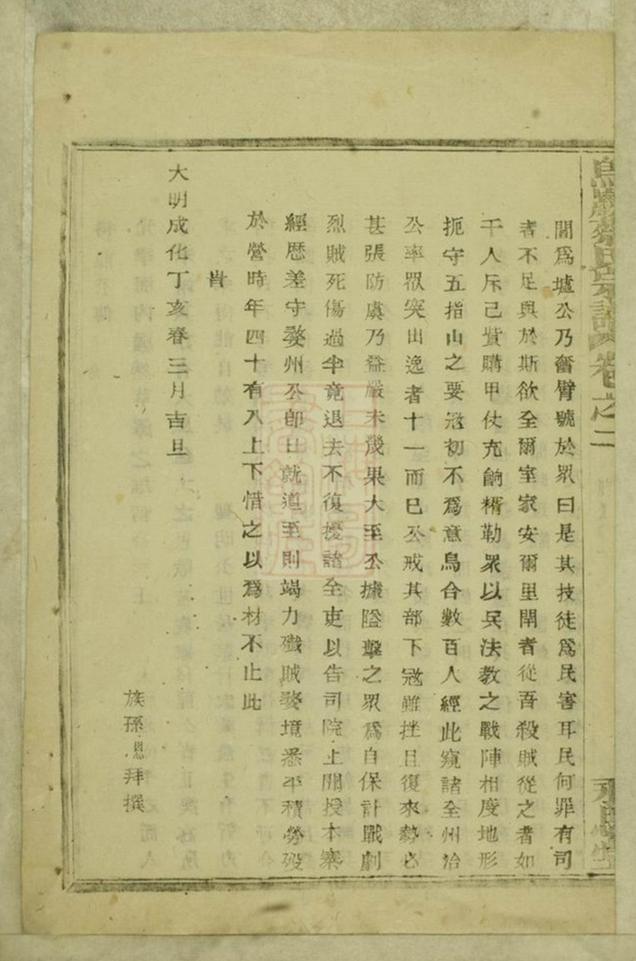 閭爲墟公乃奮臂號於眾曰是其技徒爲民害耳民何罪有司
者不足與於斯欲全爾室家安爾里閈者從吾殺賊從之者如
干人斥己貲購甲仗充餉糈勒眾以兵法教之戰陣相度地形
扼守五指山之要冦初不爲意鳥合數百人經此窺諸全州治
公率眾突出逸者十一而已公戒其部下冦雖挫且復來勢必
甚張防虞乃益嚴未幾果大至公據隘擊之眾爲自保計戰劇
烈賊死傷過半竟退去不復擾諸全吏以告司院上關授本寨
經歷差守婺州公卽日就道至則竭力殲賊婺境悉平積勞歿
於營時年四十有八上下惜之以爲材不止此
旹
大明成化丁亥春三月吉旦
族孫恩拜撰
氏宗譜卷之二